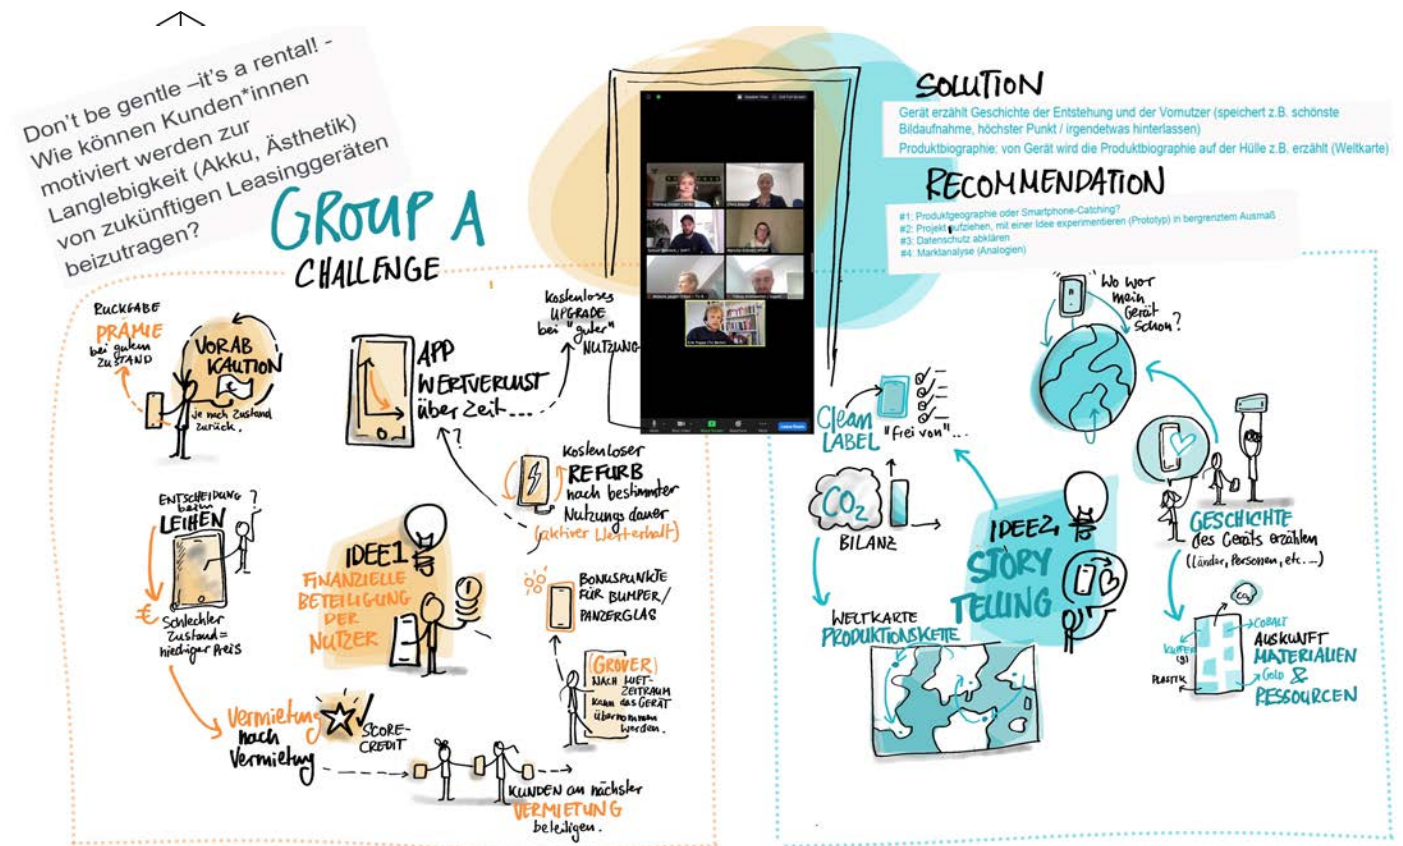 Don't be gentle –it's a rental! -
Wie können Kunden*innen
motiviert werden zur
Langlebigkeit (Akku, Ästhetik)
von zukünftigen Leasinggeräten
beizutragen?
GROUP A
CHALLENGE
RÜCKGABE
PRÄMIE
bei gutem
ZUSTAND
VORAB
KAUTION
€
je nach Zustand
zurück.
APP
WERTVERLUST
über Zeit...
?
kostenloses
UPGRADE
bei "guter"
NUTZUNG
kostenloser
REFURB
nach bestimmter
Nutzungsdauer
(aktiver Werterhalt)
ENTSCHEIDUNG ?
beim
LEIHEN
€
Schlechter
Zustand =
niedriger Preis
IDEE1
FINANZIELLE
BETEILIGUNG
DER
NUTZER
BONUSPUNKTE
FÜR BUMPER/
PANZERGLAS
(GROVER)
NACH MIET-
ZEITRAUM
kann das GERÄT
übernommen
werden.
Vermietung
nach
Vermietung
SCORE-
CREDIT
KUNDEN an nächster
VERMIETUNG
beteiligen.
SOLUTION
Gerät erzählt Geschichte der Entstehung und der Vornutzer (speichert z.B. schönste
Bildaufnahme, höchster Punkt / irgendetwas hinterlassen)
Produktbiographie: von Gerät wird die Produktbiographie auf der Hülle z.B. erzählt (Weltkarte)
RECOMMENDATION
#1: Produktgeographie oder Smartphone-Catching?
#2: Projekt aufziehen, mit einer Idee experimentieren (Prototyp) in bergrenztem Ausmaß
#3: Datenschutz abklären
#4: Marktanalyse (Analogien)
Wo war
mein
Gerät
schon?
Clean
LABEL
"frei von"...
CO2
BILANZ
IDEE2
STORY
TELLING
GESCHICHTE
des Geräts erzählen
(Länder, Personen, etc....)
WELTKARTE
PRODUKTIONSKETTE
CO2
COBALT
KUPFER
(g)
PLASTIK
GOLD
AUSKUNFT
MATERIALIEN
&
RESSOURCEN